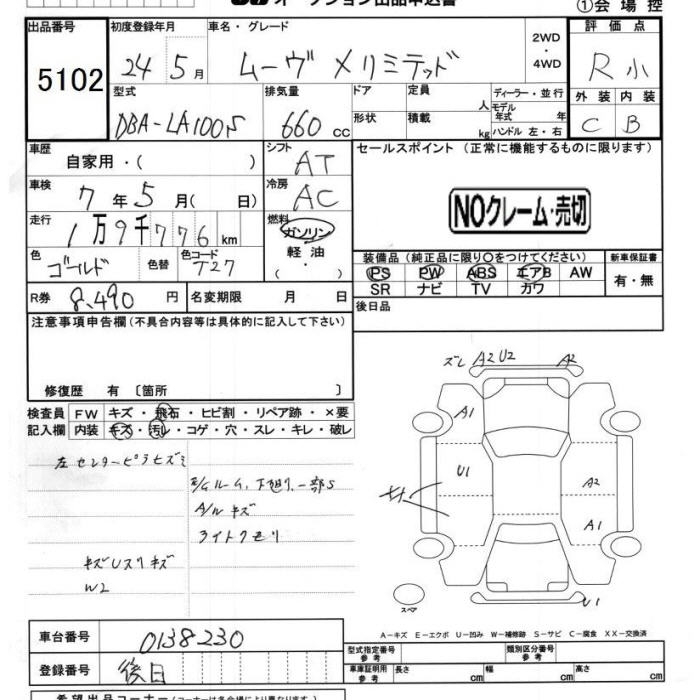 オークション出品申込書 ①会場控
出品番号 初度登録年月 車名・グレード 2WD ・ 4WD 評価点
5102 24年5月 ムーヴ メリミテッド R小
型式 排気量 ドア 定員 人 ディーラー・並行 外装 内装
DBA-LA100S 660cc 形状 積載 kg モデル年式 年 ハンドル 左・右 C B
車歴 自家用・( ) シフト AT セールスポイント (正常に機能するものに限ります)
車検 7年5月( 日) 冷房 AC
NOクレーム・売切
走行 1万9千776km 燃料 ガソリン 軽油 ・( )
色 ゴールド 色替 色コード T27
装備品 (純正品に限り○をつけてください) 新車保証書
PS PW ABS エアB AW 有・無
SR ナビ TV カワ
R券 8,490円 名変期限 月 日 後日品
注意事項申告欄 (不具合内容等は具体的に記入して下さい)
修復歴 有 〔箇所 〕
検査員 FW キズ・飛石・ヒビ割・リペア跡・×要
記入欄 内装 キズ・汚レ・コゲ・穴・スレ・キレ・破レ
ズレ A2 U2 A2
A1
左センターピラヒズミ
U1 A2
ルーム、下廻り、一部S
A/Wキズ
A1
ライトクモリ
キズUスリキズ
W2
U1
スペア
A-キズ E-エクボ U-凹み W-補修跡 S-サビ C-腐食 XX-交換済
車台番号 0138230
型式指定番号 参考 類別区分番号 参考
登録番号 後日
車庫証明用 参考 長さ cm 幅 cm 高さ cm
希望出品コーナー